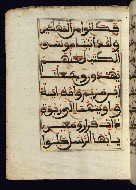 فكانوا من المهلكين
ولقد اتينا موسى
الكتب لعلهم
يهتدون وجعلنا
ابن مريم وامه اية
واوينهما الى ربوة
ذات قرار ومعين
يايها الرسل كلوا